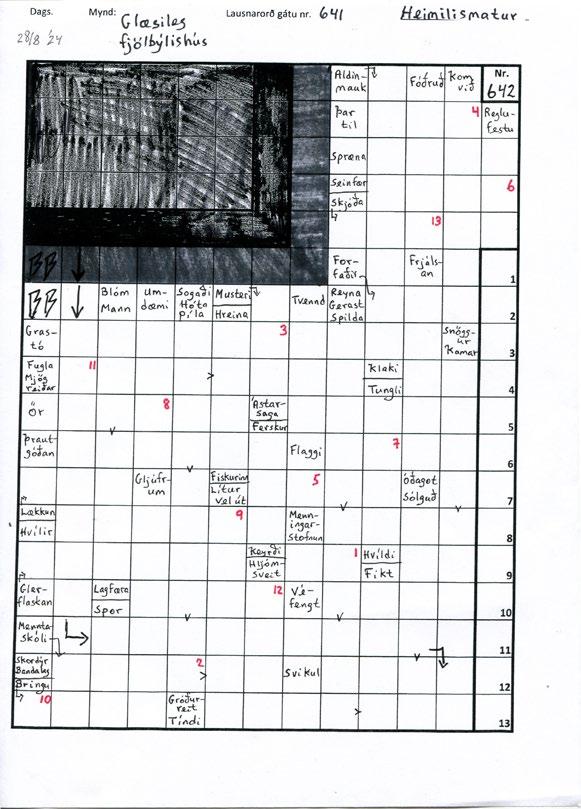 Dags.
Mynd:
Lausnarorð gátu nr. 641
Heimilismatur
28/8 '24
Glæsileg
fjölbýlishús
Aldin-
mauk
Fóðruð
Kom
við
Nr.
642
Þar
til
4
Reglu-
festu
Spræna
Seinfær
6
Skjóða
13
For-
faðir
Frjáls-
an
1
BB
BB
Blóm
Mann
Um-
dæmi
Sogaði
Hóta
píla
Musteri
Hreina
Tvennd
Reyna
Gerast
Spilda
2
Gras-
tó
3
Snögg-
ur
Kamar
3
Fugla
Mjög
reiðar
11
Klaki
Tungli
4
Ör
8
Ástar-
saga
Ferskur
5
Þraut-
góðan
Flaggi
7
6
Gljúfr-
um
Fiskurinn
Lítur
vel út
5
Óðagot
Sólguð
7
Lækkun
Hvílir
9
Menn-
ingar-
stofnun
8
Keyrði
Hljóm-
sveit
1
Hvíldi
Fikt
9
Gler-
flaskan
Lagfæra
Spor
12
Vé-
fengt
10
Mennta-
skóli
11
Skordýr
Bandalag
Bringu
2
Svikul
12
10
Gróður-
reit
Tíndi
13